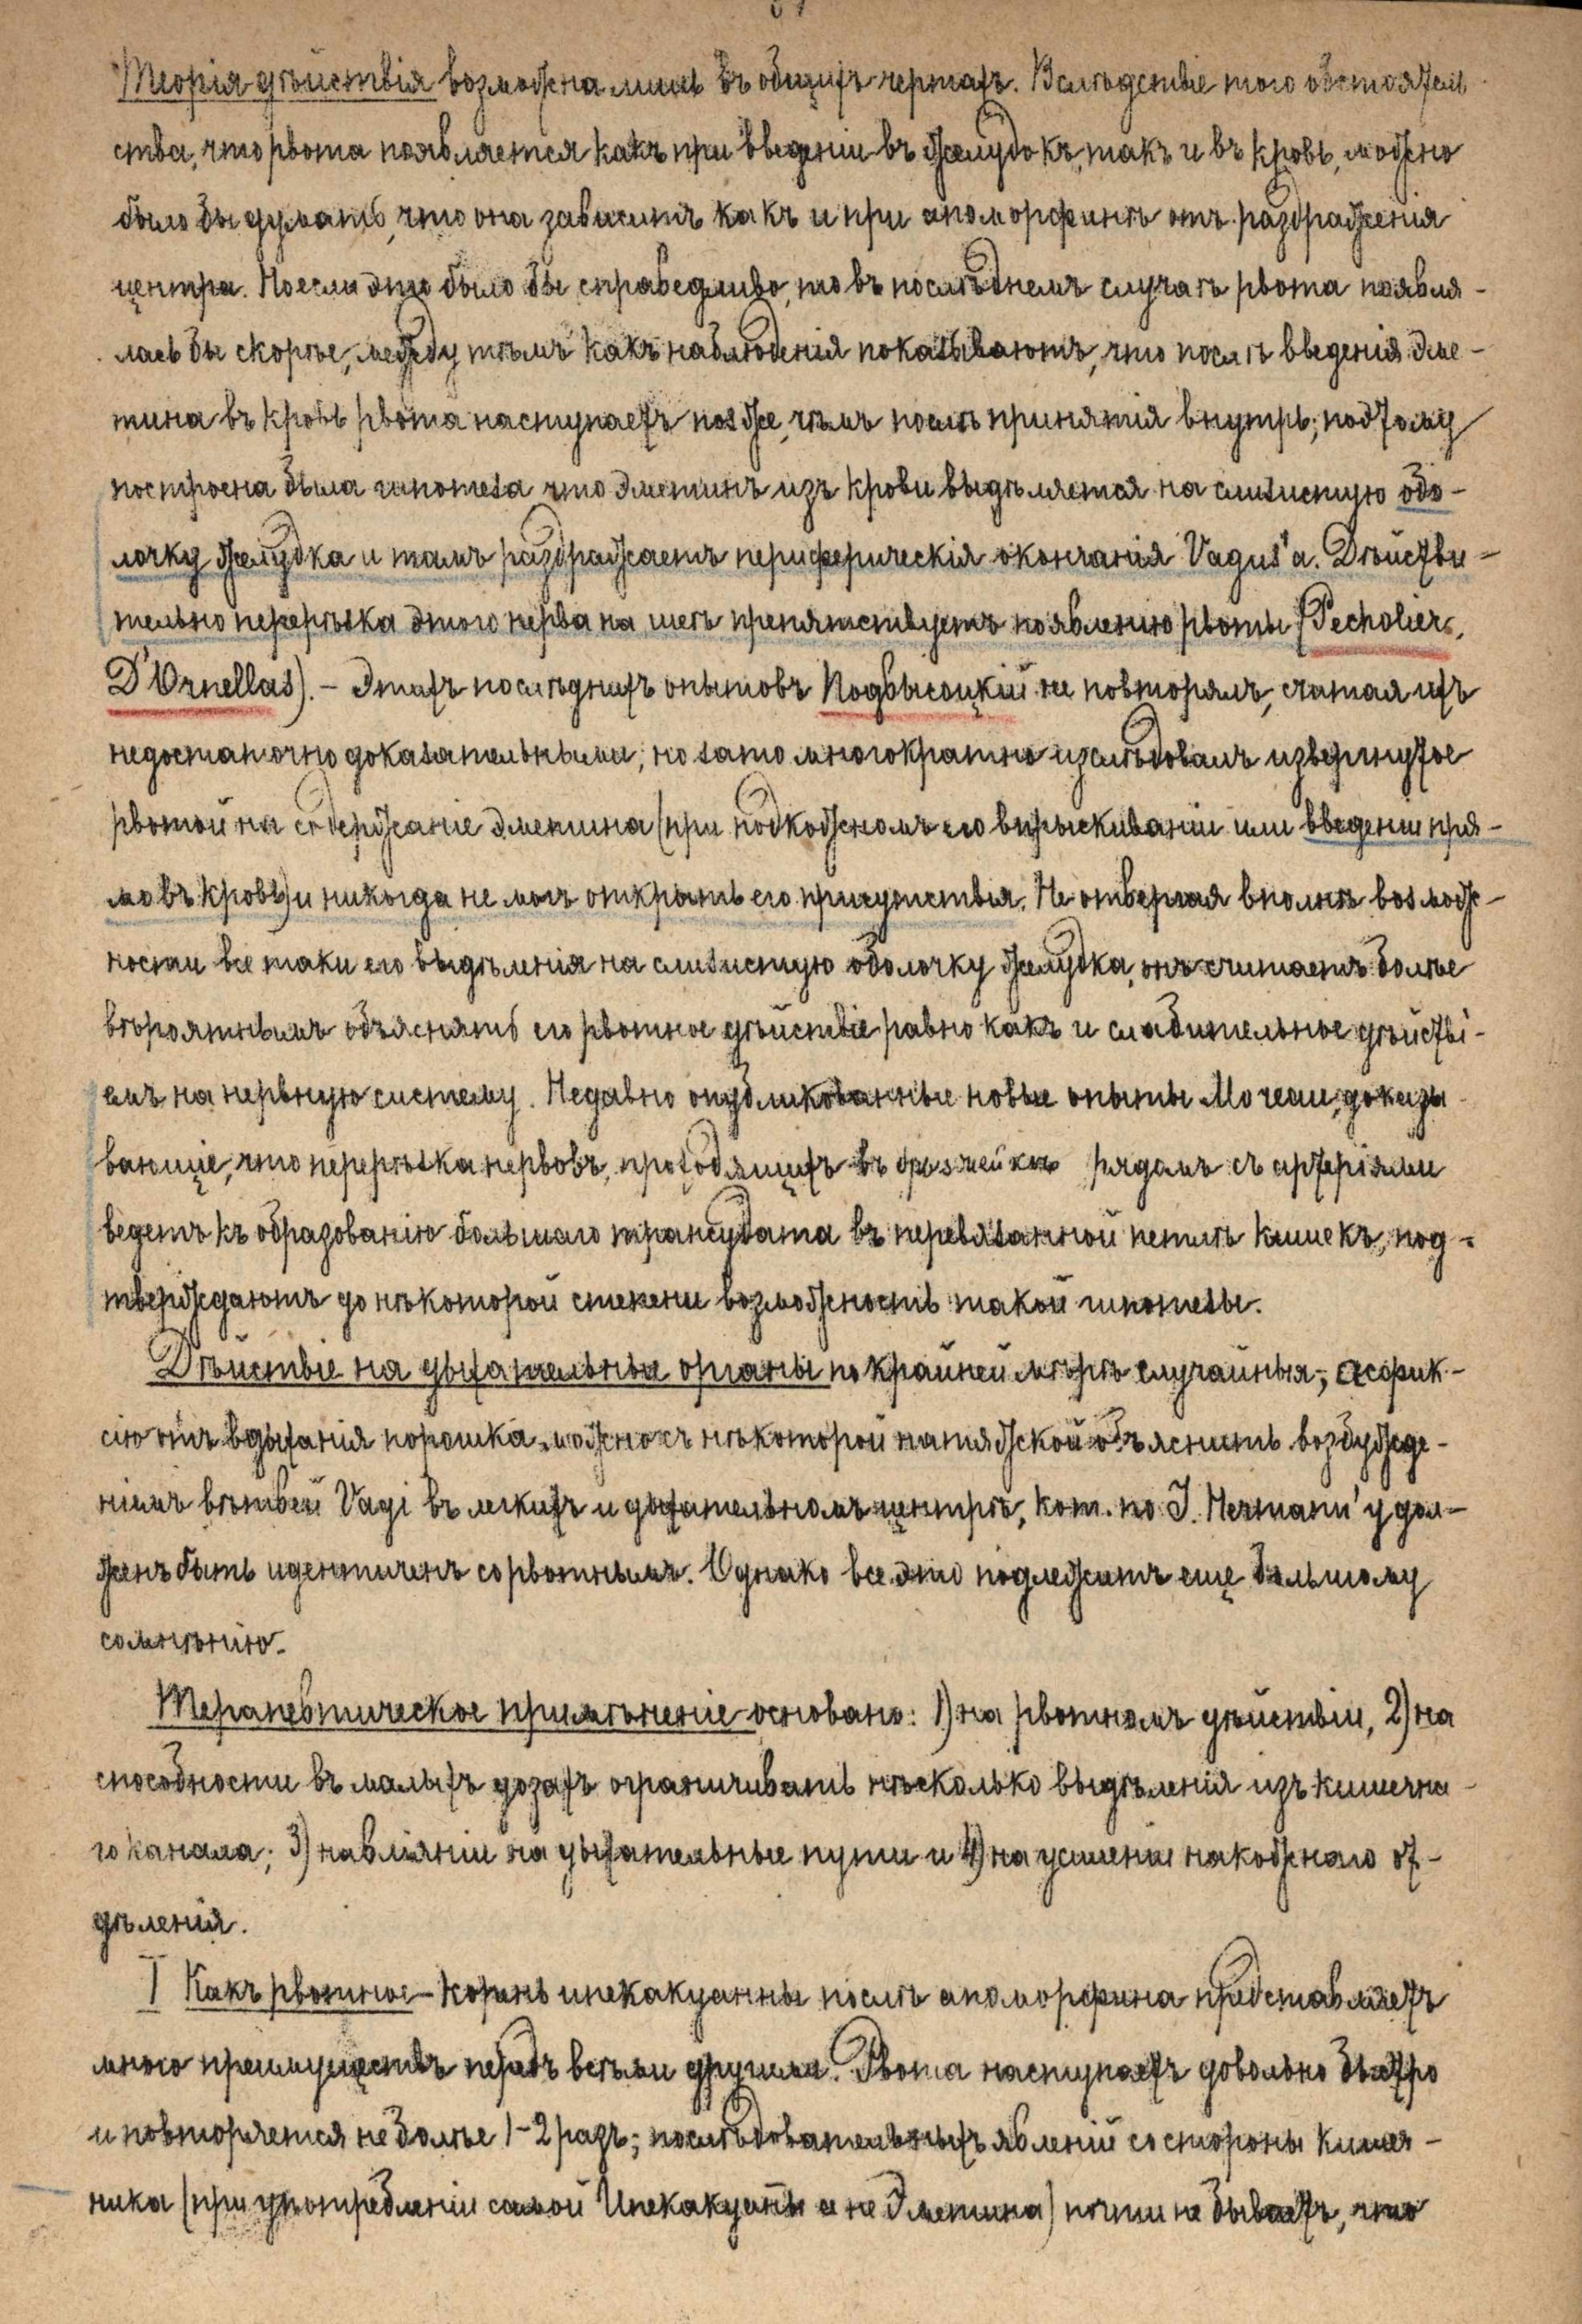 Теорія дѣйствія возможна лишь въ общихъ чертахъ. Вслѣдствіе того обстоятель-
ства, что рвота появляется какъ при введеніи въ желудокъ, такъ и въ кровь, можно
было бы думать, что она зависитъ какъ и при апоморфинѣ отъ раздраженія
центра. Но если это было бы справедливо, то въ послѣднемъ случаѣ рвота появля-
лась бы скорѣе, между тѣмъ какъ наблюденія показываютъ, что послѣ введенія эме-
тина въ кровь рвота наступаетъ позже, чѣмъ послѣ принятія внутрь; поэтому
построена была гипотеза что эметинъ изъ крови выдѣляется на слизистую обо-
лочку желудка и тамъ раздражаетъ периферическія окончанія Vagus'а. Дѣйстви-
тельно перерѣзка этого нерва на шеѣ препятствуетъ появленію рвоты (Pecholier,
D'Ornellas). – Этихъ послѣднихъ опытовъ Подвысоцкій не повторялъ, считая ихъ
недостаточно доказательными, но зато многократно изслѣдовалъ извергнутое
рвотой на содержаніе эметина (при подкожномъ его впрыскиваніи или введеніи пря-
мо въ кровь) и никогда не могъ открыть его присутствія. Не отвергая вполнѣ возмож-
ности все таки его выдѣленія на слизистую оболочку желудка, онъ считаетъ болѣе
вѣроятнымъ объяснять его рвотное дѣйствіе равно какъ и слабительное дѣйстві-
емъ на нервную систему. Недавно опубликованные новые опыты Moreau, доказы-
вающіе, что перерѣзка нервовъ, проходящихъ въ брызжейкѣ рядомъ съ артеріями
ведетъ къ образованію большаго трансудата въ перевязанной петлѣ кишекъ, под-
тверждаютъ до нѣкоторой степени возможность такой гипотезы.
Дѣйствіе на дыхательные органы по крайней мѣрѣ случайныя; асфик-
сію отъ вдыханія порошка можно съ нѣкоторой натяжкой объяснить возбужде-
ніемъ вѣтвей Vagi въ легкихъ и дыхательномъ центрѣ, кот. по J. Hermann'у дол-
женъ быть идентиченъ со рвотнымъ. Однако все это подлежитъ еще большому
сомнѣнію.
Терапевтическое примѣненіе основано: 1) на рвотномъ дѣйствіи, 2) на
способности въ малыхъ дозахъ ограничивать нѣсколько выдѣленія изъ кишечна-
го канала; 3) на вліяніи на дыхательные пути и 4) на усиленіи накожнаго от-
дѣленія.
I Какъ рвотное – корень ипекакуанны послѣ апоморфина представляетъ
много преимуществъ передъ всѣми другими. Рвота наступаетъ довольно быстро
и повторяется не болѣе 1–2 разъ; послѣдовательныхъ явленій со стороны кишеч-
ника (при употребленіи самой Ипекакуаны а не Эметина) почти не бываетъ, что